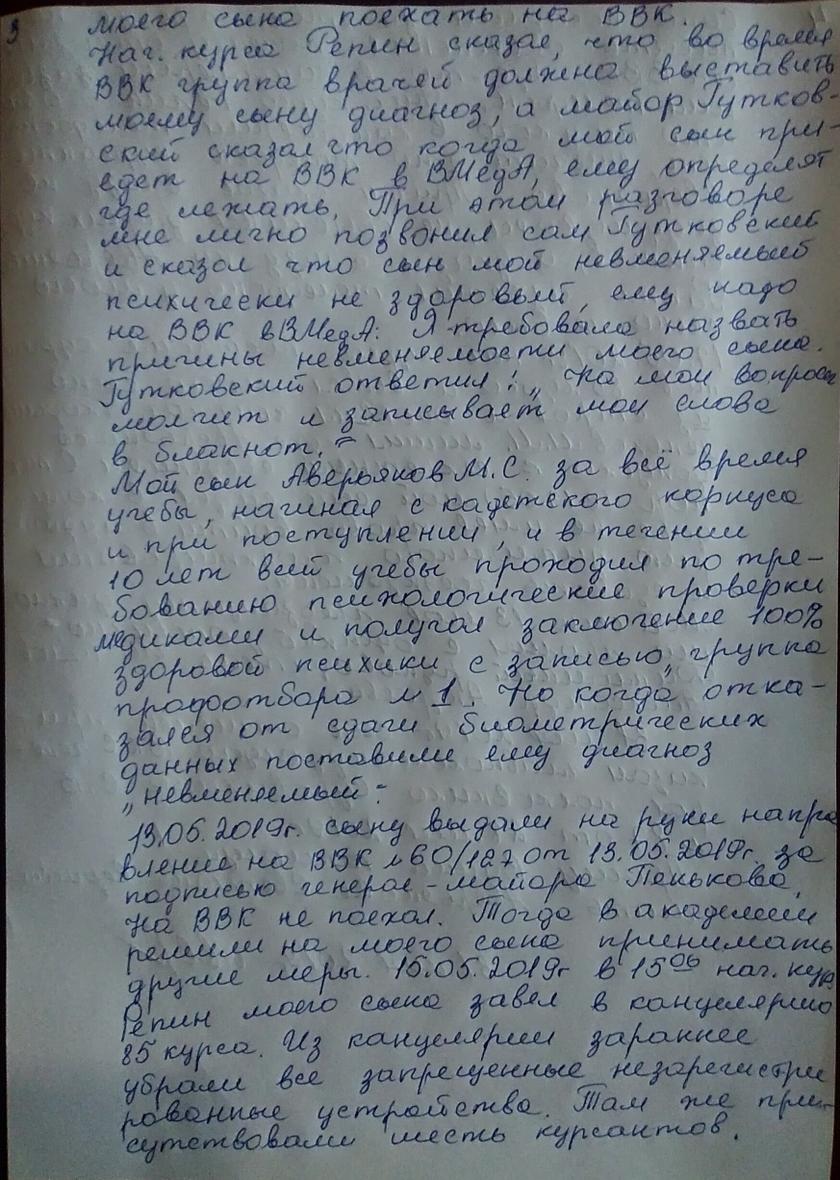 3
моего сына поехать на ВВК.
Нач. курса Репин сказал, что во время
ВВК группа врачей должна выставить
моему сыну диагноз, а майор Гутков-
ский сказал что когда мой сын при-
едет на ВВК в ВМедА, ему определят
где лежать. При этом разговоре
мне лично позвонил сам Гутковский
и сказал что сын мой невменяемый
психически не здоровый, ему надо
на ВВК вВМедА. Я требовала назвать
причины невменяемости моего сына.
Гутковский ответил: „На мои вопросы
молчит и записывает мои слова
в блакнот."
Мой сын Аверьянов М.С. за всё время
учебы, начиная с кадетского корпуса
и при поступлении, и в течении
10 лет всей учебы проходил по тре-
бованию психологические проверки
медиками и получал заключение 100%
здоровой психики с записью „группа
профотбора №1. Но когда отка-
зался от сдачи биометрических
данных поставили ему диагноз
„невменяемый".
13.05.2019г. сыну выдали на руки напра
вление на ВВК №60/127 от 13.05.2019г. за
подписью генерал-майора Пенькова,
На ВВК не поехал. Тогда в академии
решили на моего сына принимать
другие меры. 15.05.2019г в 15 06 нач. кур.
Репин моего сына завел в канцелярию
85 курса. Из канцелярии зараннее
убрали все запрещенные незарегистри
рованные устройства. Там же при-
сутствовали шесть курсантов.